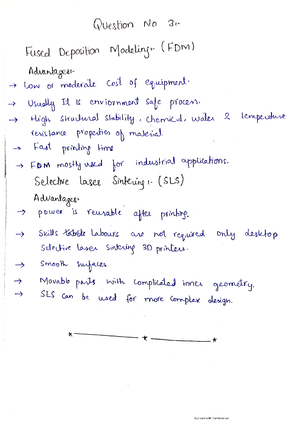 Question No 3:-
Fused Deposition Modeling:- (FDM)
Advantages:-
→ Low or moderate cost of equipment.
→ Usually It is enviornment safe process.
→ High structural stability, chemical, water & temperature
resistance properties of material.
→ Fast printing time
→ FDM mostly used for industrial applications.
Selective laser Sintering:- (SLS)
Advantages:-
→ power is reusable after printing.
→ Skills labours are not required only desktop
Selective laser sintering 3D printers.
→ Smooth surfaces
→ Movable parts with complicated inner geometry.
→ SLS can be used for more complex design.